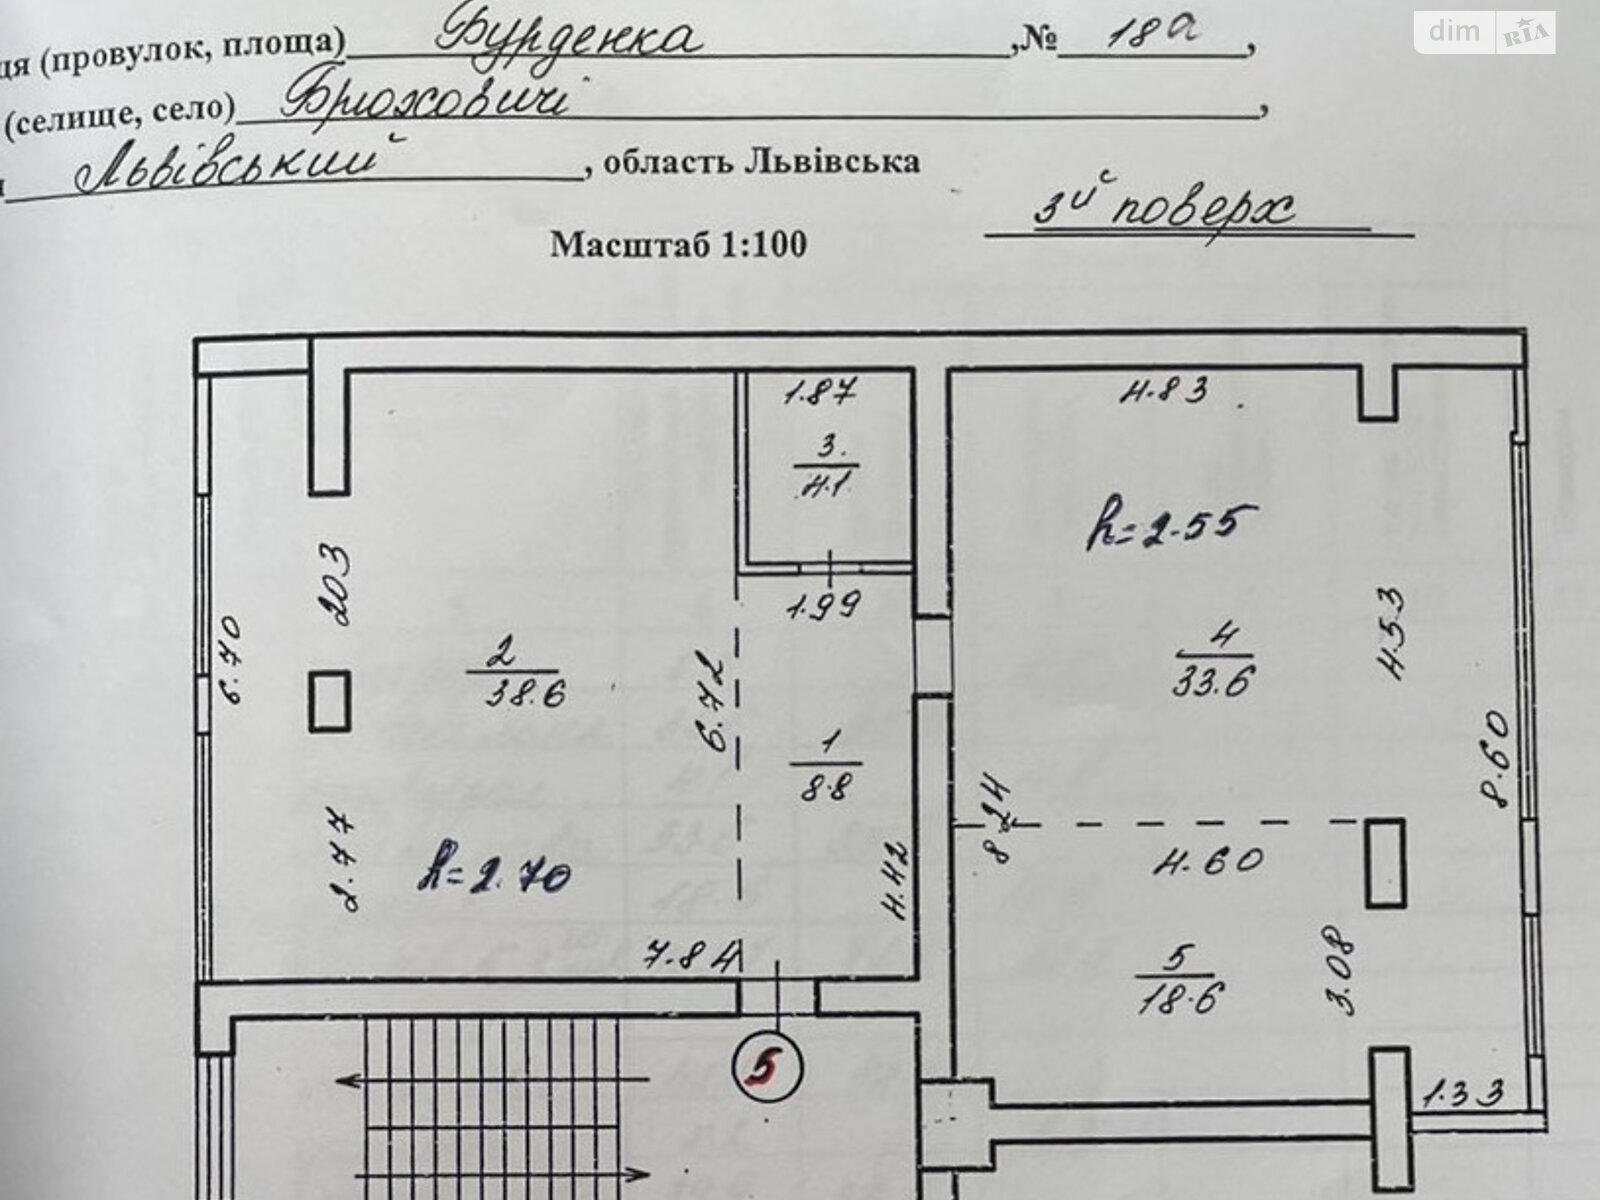 ця (провулок, площа) Бурденка ,№ 18а ,
(селище, село) Брюховичі ,
Львівський , область Львівська
3й поверх
Масштаб 1:100
dim RIA
1.87
4.83
3.
4.1
h=2.55
1.99
203
6.70
2
38.6
6.72
4
33.6
4.53
1
8.8
8.60
2.77
h=2.70
4.42
8.24
4.60
7.84
5
18.6
3.08
5
1.33